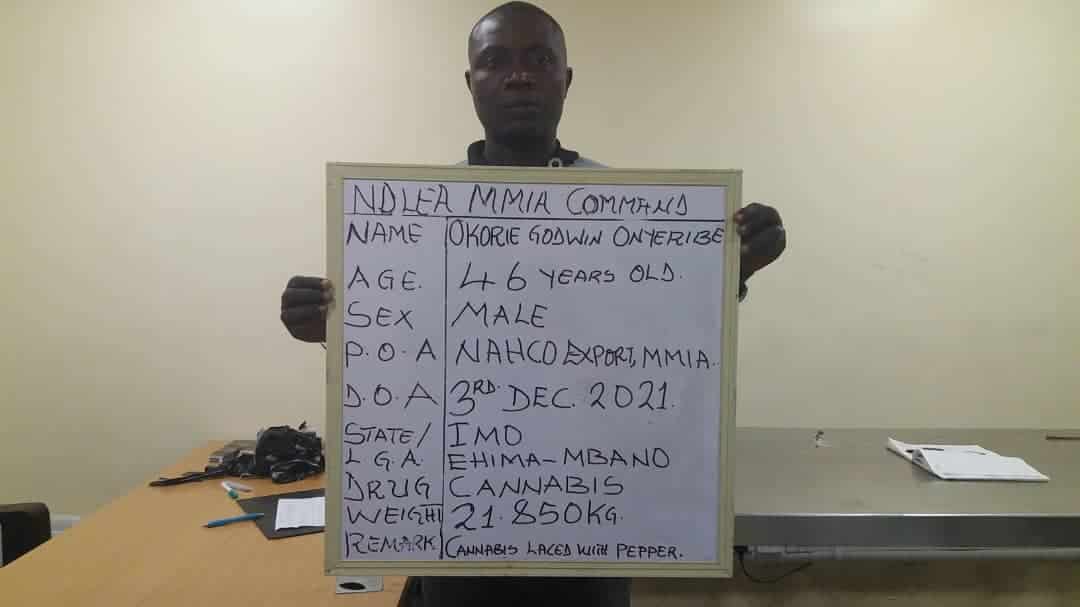 NDLEA MMIA COMMAND
NAME OKORIE GODWIN ONYERIBE
AGE. 46 YEARS OLD.
SEX MALE
P.O.A NAHCO EXPORT, MMIA.
D.O.A 3RD. DEC. 2021.
STATE/ IMO
L.G.A. EHIMA-MBANO
DRUG CANNABIS
WEIGHT 21.850KG.
REMARK CANNABIS LACED WITH PEPPER.